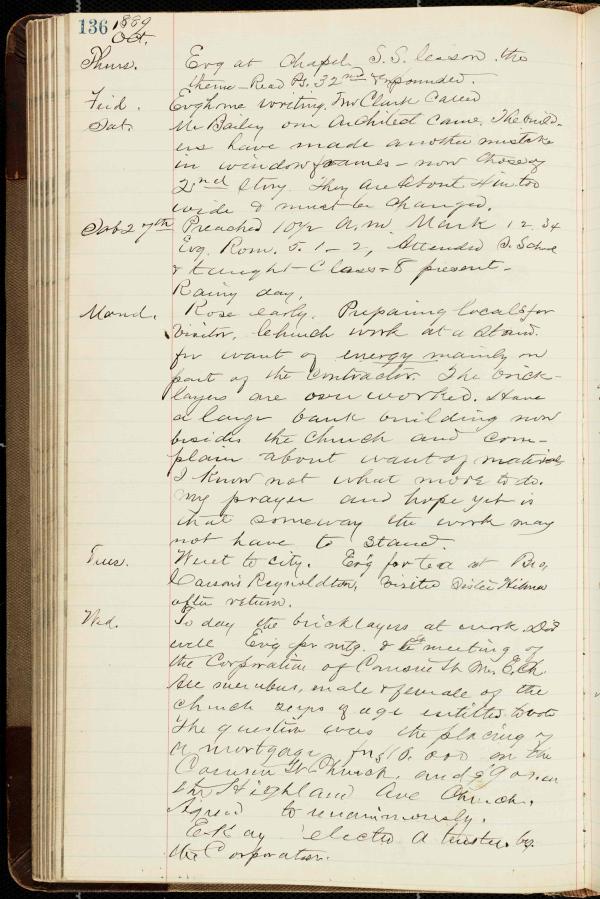 136 1889
Oct.
Thurs. Evg at Chapel, S.S. lesson the
theme - Read Ps. 32nd & expounded.
Frid. Evg home writing. Called
Sat. Mr Bailey our Architect came. The build-
ers have made another mistake
in window frames - now those of
2nd Story. They are about 4 in too
wide & must be changed.
Sab 27th Preached 10½ a.m. Mark 12.34
Evg. Rom. 5. 1-2, Attended S. School
& taught - Class - 8 present -
Rainy day,
Mond. Rose early. Preparing locals for
Visitor, Church work at a stand
for want of energy mainly on
part of the contractor. The brick-
layers are over worked. Have
a large bank building now
besides the Church and com-
plain about want of material
I know not what more to do.
My prayer and hope yet is
that someway the work may
not have to stand
Tues. Went to city. Evg for tea at Bro
Carson's Reynoldton, Visited Sister
after return.
Wed. To day the bricklayers at work. Did
well Evg pr mtg. & meeting of
the Corporation of St. M. E. Ch.
All members, male & female of the
church 21 yrs of age entitled to vote
The question was the placing of
a mortgage for $10.000 on the
St. Church, and on
the Highland Ave Church.
Agreed to unanimously.
E. Kay elected a trustee by
the Corporation.